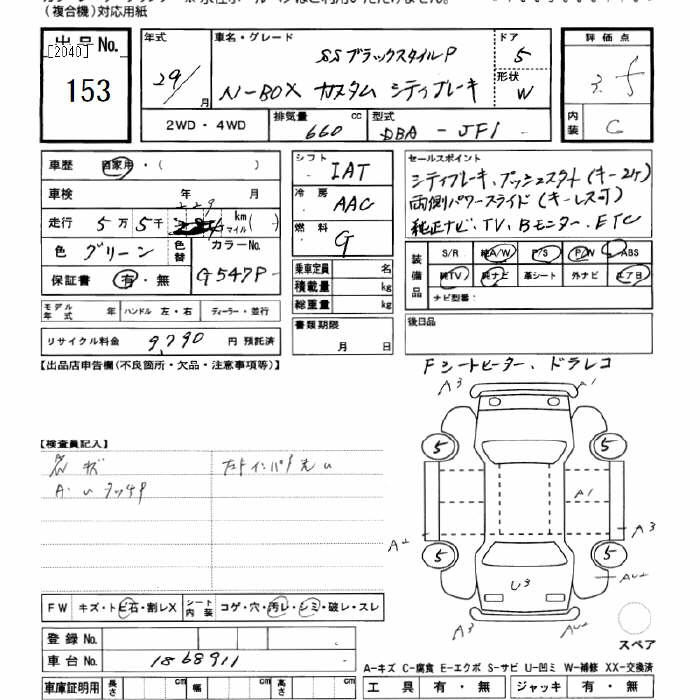 (複合機)対応用紙
出品No.
[2040]
153
年式
29/
月
車名・グレード
SSブラックスタイルP
N-BOX カスタム シティブレーキ
ドア
5
形状
W
評価点
3.5
内装
C
2WD・4WD
排気量
660
cc
型式
DBA - JF1
車歴
自家用・( )
車検 年 月
走行 5万5千
229
km
マイル
( )
色 グリーン
色替
カラーNo.
G547P
保証書 有・無
モデル年式 年 ハンドル 左・右 ディーラー・並行
リサイクル料金 9,790 円 預託済
シフト IAT
冷房 AAC
燃料 G
乗車定員 名
積載量 kg
総重量 kg
書類期限
月 日
セールスポイント
シティブレーキ、プッシュスタート(キー2ケ)
両側パワースライド(キーレス可)
純正ナビ、TV、Bモニター、ETC
装備品
S/R 純A/W P/S P/W ABS
純TV 純ナビ 革シート 外ナビ エアB
ナビ型番:
後日品
【出品店申告欄(不良箇所・欠品・注意事項等)】
Fシートヒーター、ドラレコ
A3
A1
5
5
A1
A2
A3
5
5
U3
A3
A3
スペア
【検査員記入】
キズ
FW キズ・トビ石・割レX
シート内装 コゲ・穴・汚レ・シミ・破レ・スレ
登録No.
車台No. 1868911
車庫証明用 長さ cm 幅 cm 高さ cm
A-キズ C-腐食 E-エクボ S-サビ U-凹ミ W-補修 XX-交換済
工具 有・無 ジャッキ 有・無